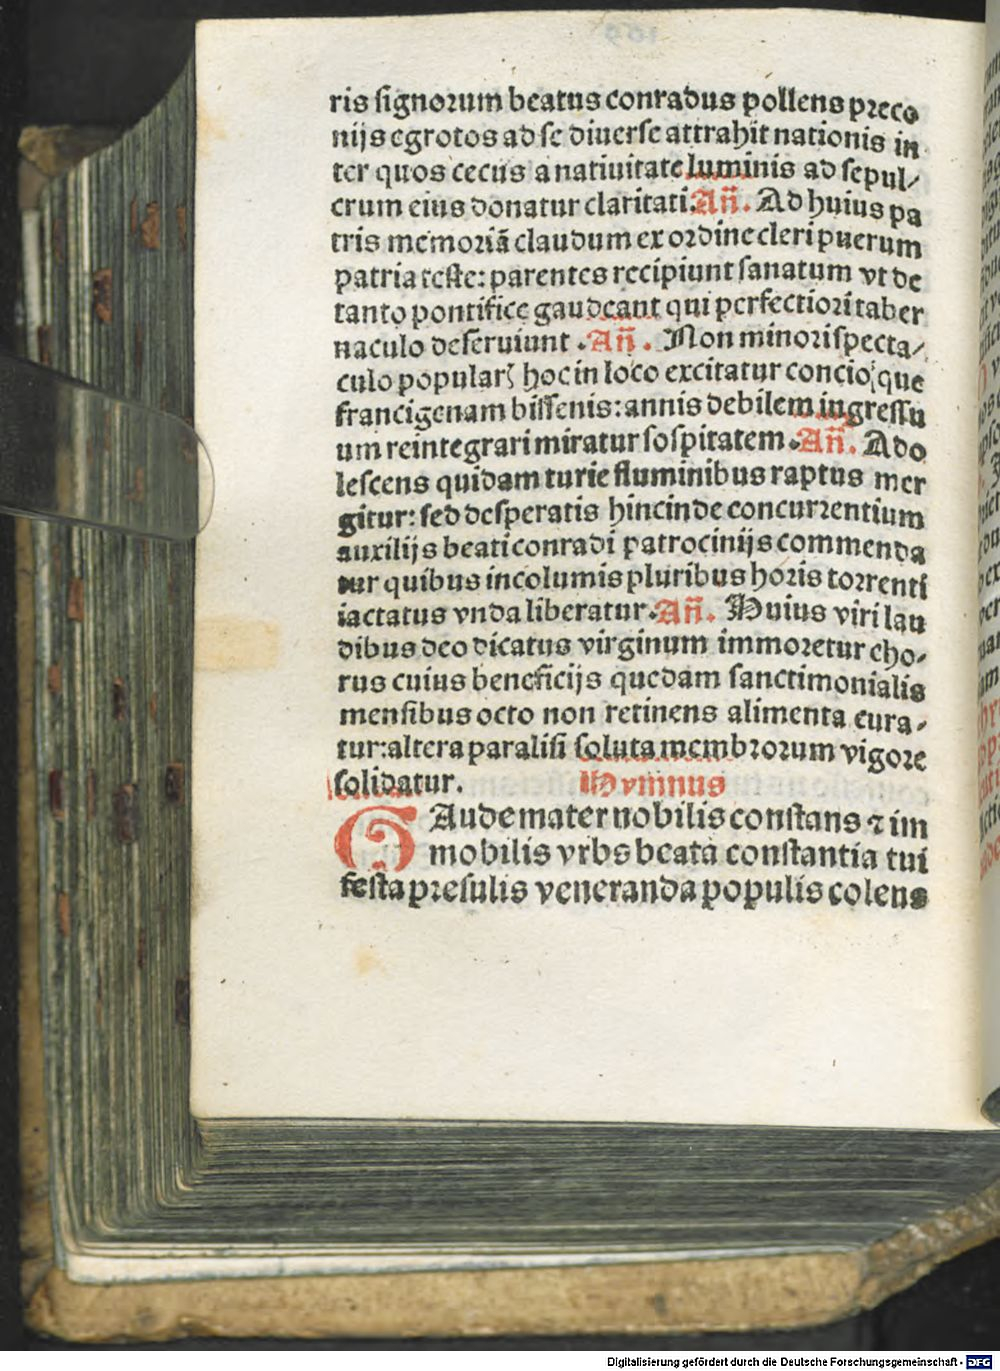 ris signorum beatus conradus pollens preco
nijs egrotos ad se diuerse attrahit nationis in
ter quos cecus a natiuitate luminis ad sepul/
crum eius donatur claritati. Añ. Ad huius pa
tris memoriā claudum ex ordine cleri puerum
patria teste: parentes recipiunt sanatum vt de
tanto pontifice gaudeant qui perfectiori taber
naculo deseruiunt . Añ. Non minori specta/
culo popularꝭ hoc in loco excitatur concio: que
francigenam bissenis: annis debilem ingressu
um reintegrari miratur sospitatem. Añ. Ado
lescens quidam turie fluminibus raptus mer
gitur: sed desperatis hincinde concurrentium
auxilijs beati conradi patrocinijs commenda
tur quibus incolumis pluribus horis torrenti
iactatus vnda liberatur. Añ. Huius viri lau
dibus deo dicatus virginum immoretur cho/
rus cuius beneficijs quedam sanctimonialis
mensibus octo non retinens alimenta cura/
tur: altera paralisi soluta membrorum vigore
solidatur. Hymnus
GAude mater nobilis constans ⁊ im
mobilis vrbs beata constantia tui
festa presulis veneranda populis colens
Digitalisierung gefördert durch die Deutsche Forschungsgemeinschaft - DFG